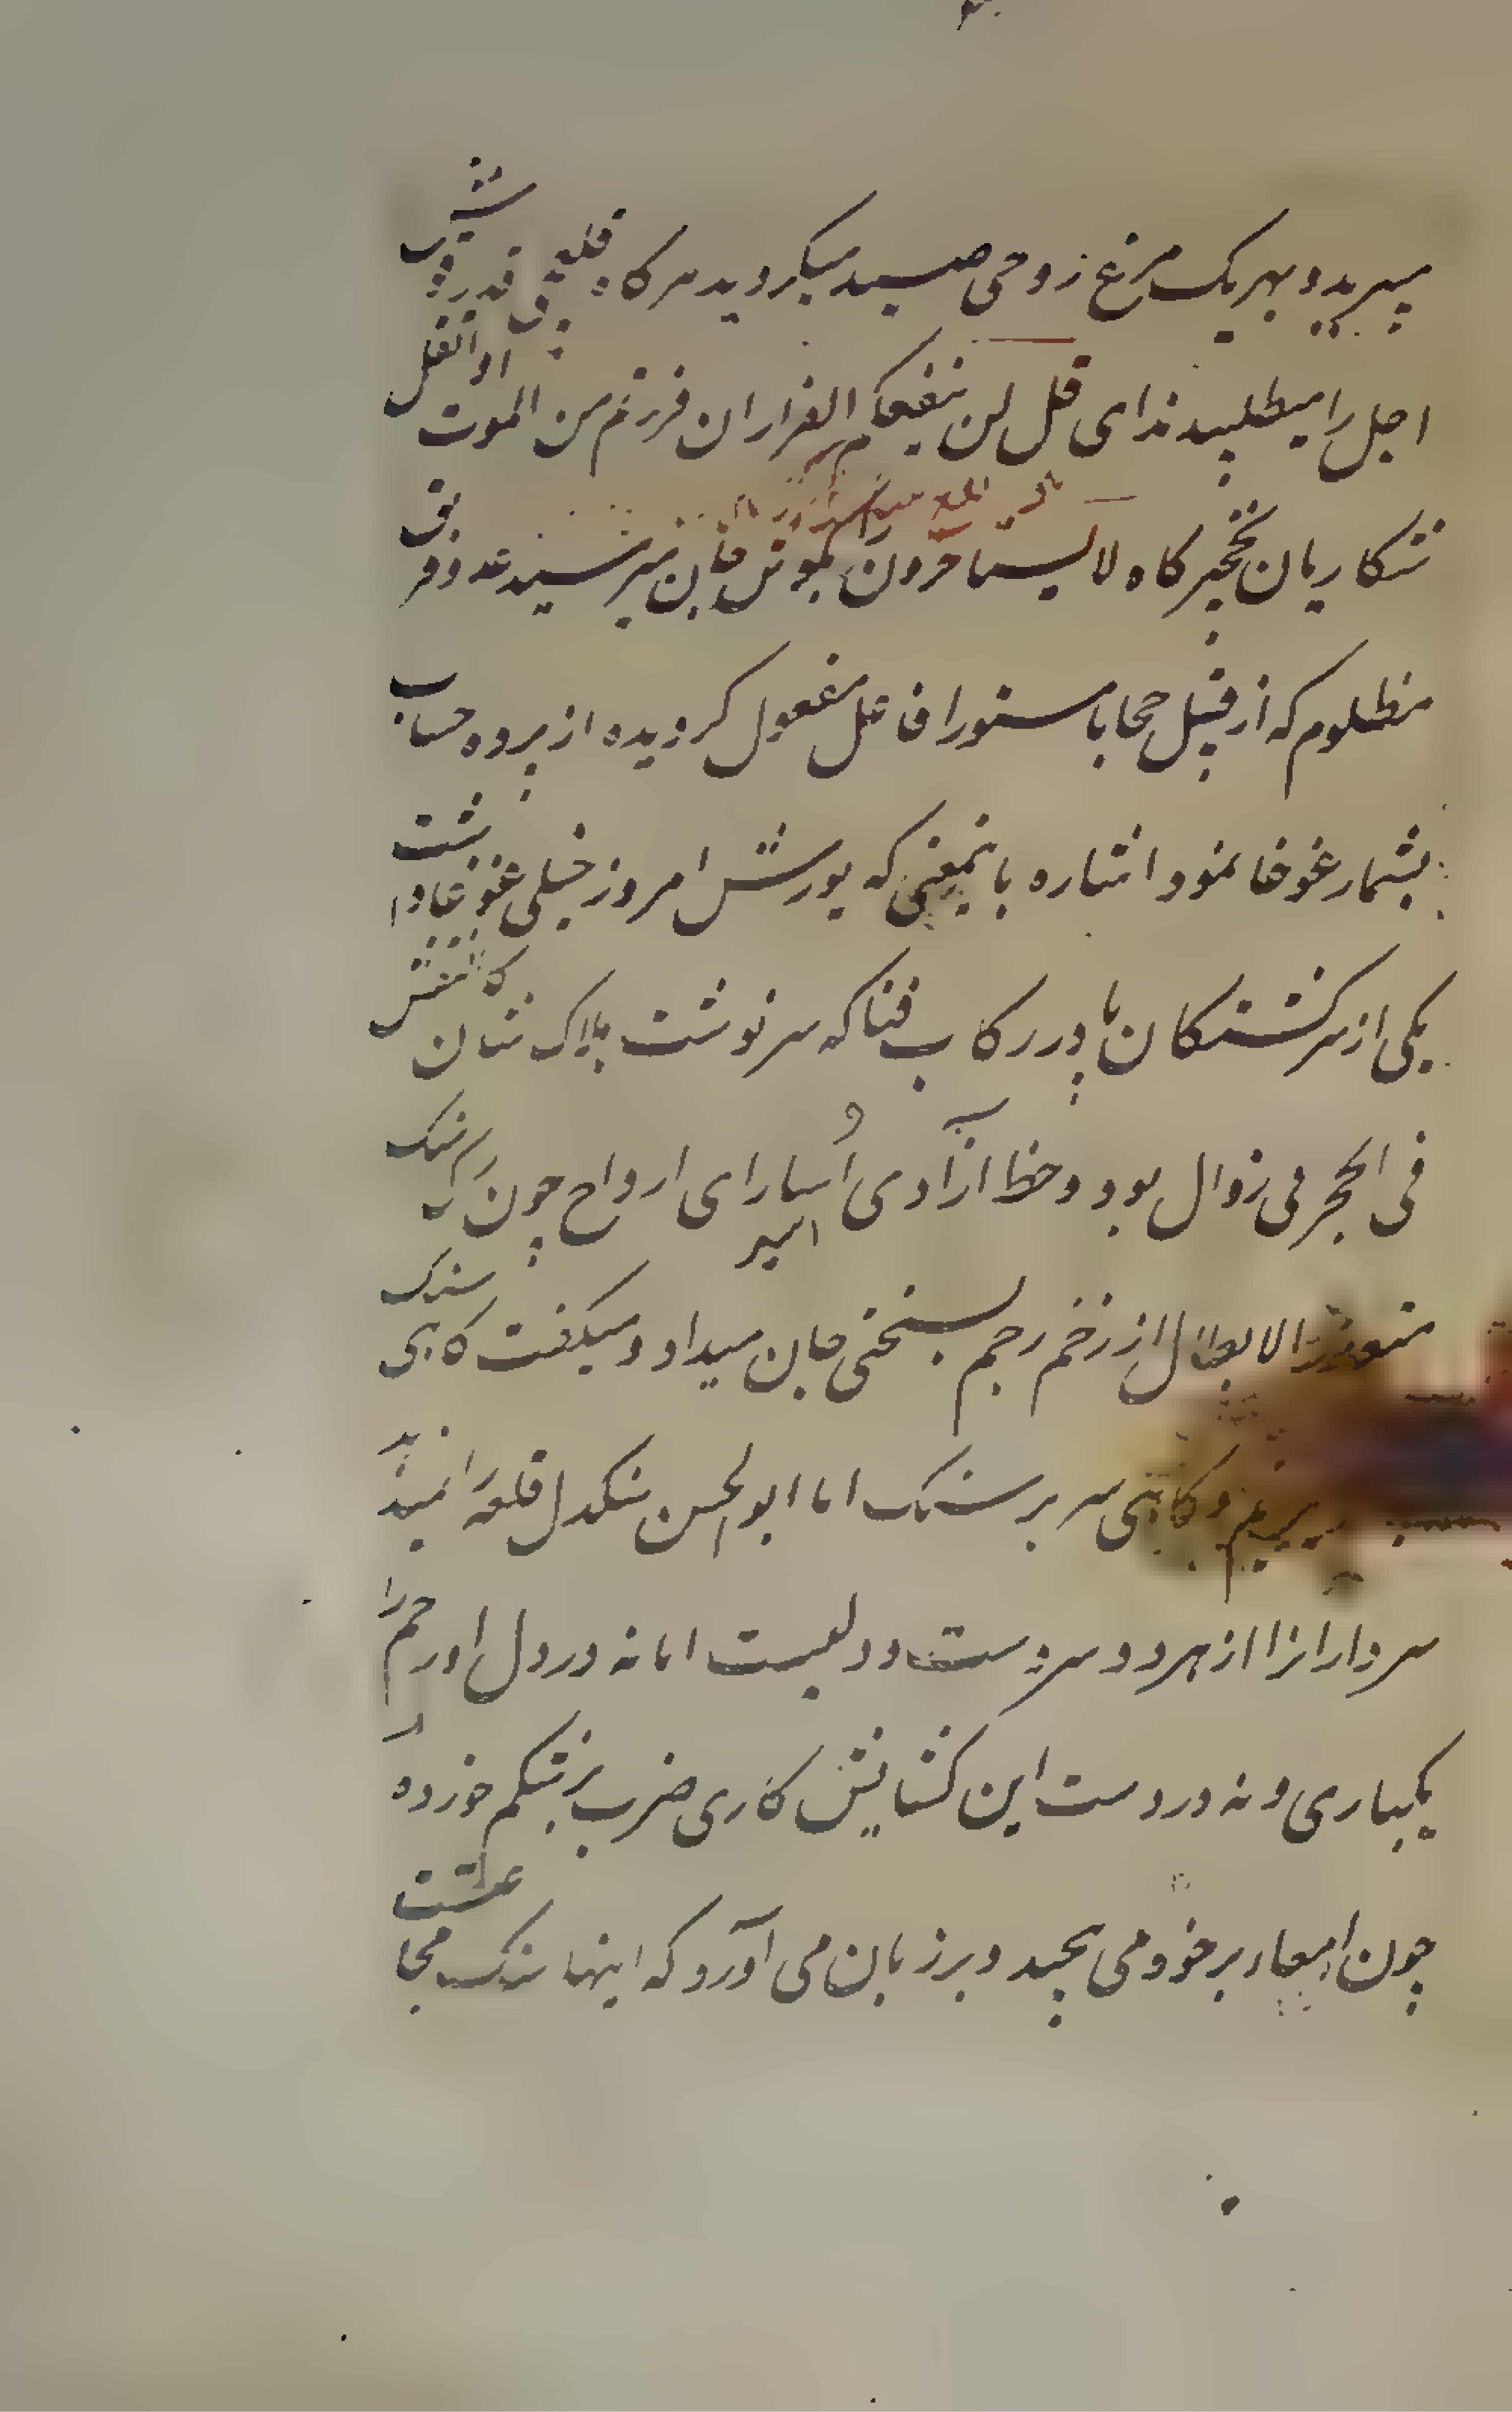 میپرید و بهر یک مرغ روحی صید میکردید هر کاه قلیچی قدر قوشی
اجل را میطلبید ندای قل لن ینفعکم الفرار ان فررتم من الموت او القتل
شکاریان نخچیر کاه لا یستاخرون بکوش جان میرسید عدو فوقی
مظلوم که از قبیل حجابا مستورا فاعل مفعول کردیده از پرده حساب
بشمار غوغا نمود اشاره باینمعنی که یورش امروز خیلی غوغا داشت
یکی از سرکشتکان پا در رکاب فنا که سرنوشت هلاک شان کالنقش
فی الحجر بی زوال بود و حظ آزادی اسارای ارواح چون رم سنک
اسیر
الابطال از زخم رجم بسختی جان میداد و میکفت کاهی سنک
بر سریم و کاهی سر بر سنک اما ابوالحسن سنکدل قلعه را نمیدید
سردار انرا از هر دو سر دست و دلیست اما نه در دل او رحم را
یکباری و نه در دست این کشایش کاری ضرب بر شکم خورده
چون امعاء بر خود می پیچید و بر زبان می آورد که اینها سنک مجاعتست